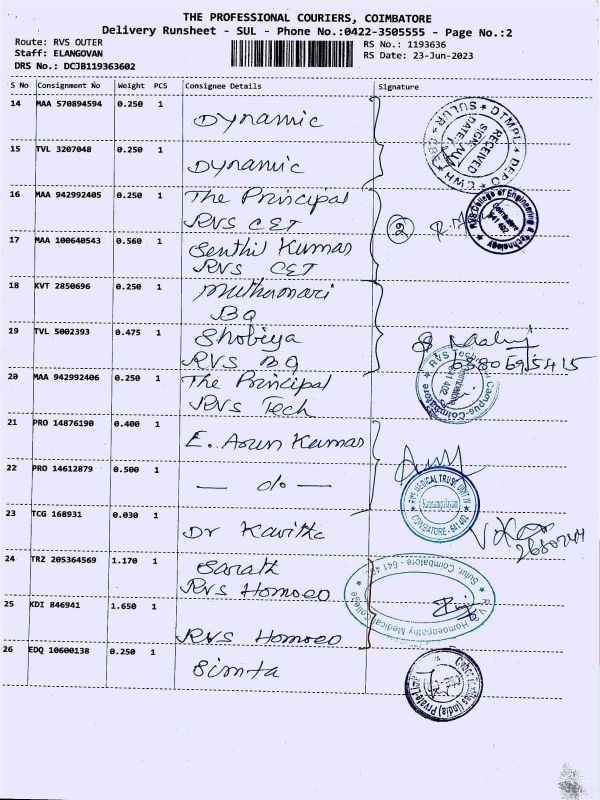 THE PROFESSIONAL COURIERS, COIMBATORE
Delivery Runsheet - SUL - Phone No.:0422-3505555 - Page No.:2
Route: RVS OUTER
Staff: ELANGOVAN
DRS No.: DCJB119363602
RS No.: 1193636
RS Date: 23-Jun-2023
S No Consignment No Weight PCS Consignee Details Signature
14 MAA 570894594 0.250 1 Dynamic
SULUR DTMPL DEPO CWH
RECEIVED
SIGN
DATE
15 TVL 3207048 0.250 1 Dynamic
16 MAA 942992405 0.250 1 The Principal
RVS CET
29
RVS College of Engineering & Technology
Coimbatore
641 402
17 MAA 100640543 0.560 1 Senthil Kumar
RVS CET
18 KVT 2850696 0.250 1 Muthumari
BQ
19 TVL 5002393 0.475 1 Shobiya
RVS BQ
20 MAA 942992406 0.250 1 The Principal
RVS Tech
RVS Tech Campus-Coimbatore
21 PRO 14876190 0.400 1 E. Arun Kumar
22 PRO 14612879 0.500 1 — do. —
RVS MEDICAL TRUST UNIT IV
Kannampalayam
COIMBATORE - 641 402
23 TCG 168931 0.030 1 Dr Kavitha
24 TRZ 205364569 1.170 1 Sarath
RVS Homoeo
R.V.S Homoeopathy Medical College
Sulur, Coimbatore 641 402
25 KDI 846941 1.650 1
RVS Homoeo
26 EDQ 10600138 0.250 1 Simta
(India) Private Limited